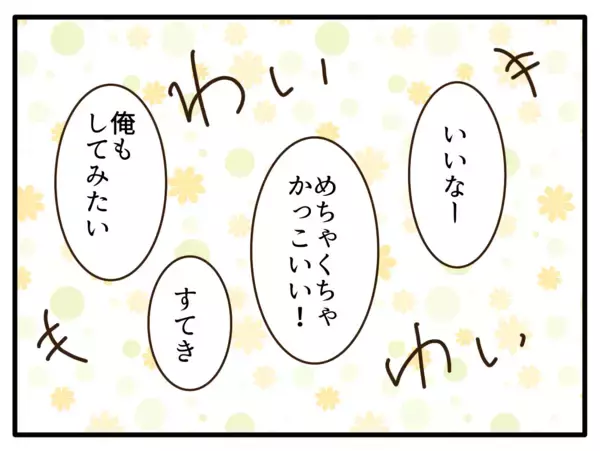 わい
わい
いいなー
めちゃくちゃ
かっこいい！
俺も
してみたい
すてき